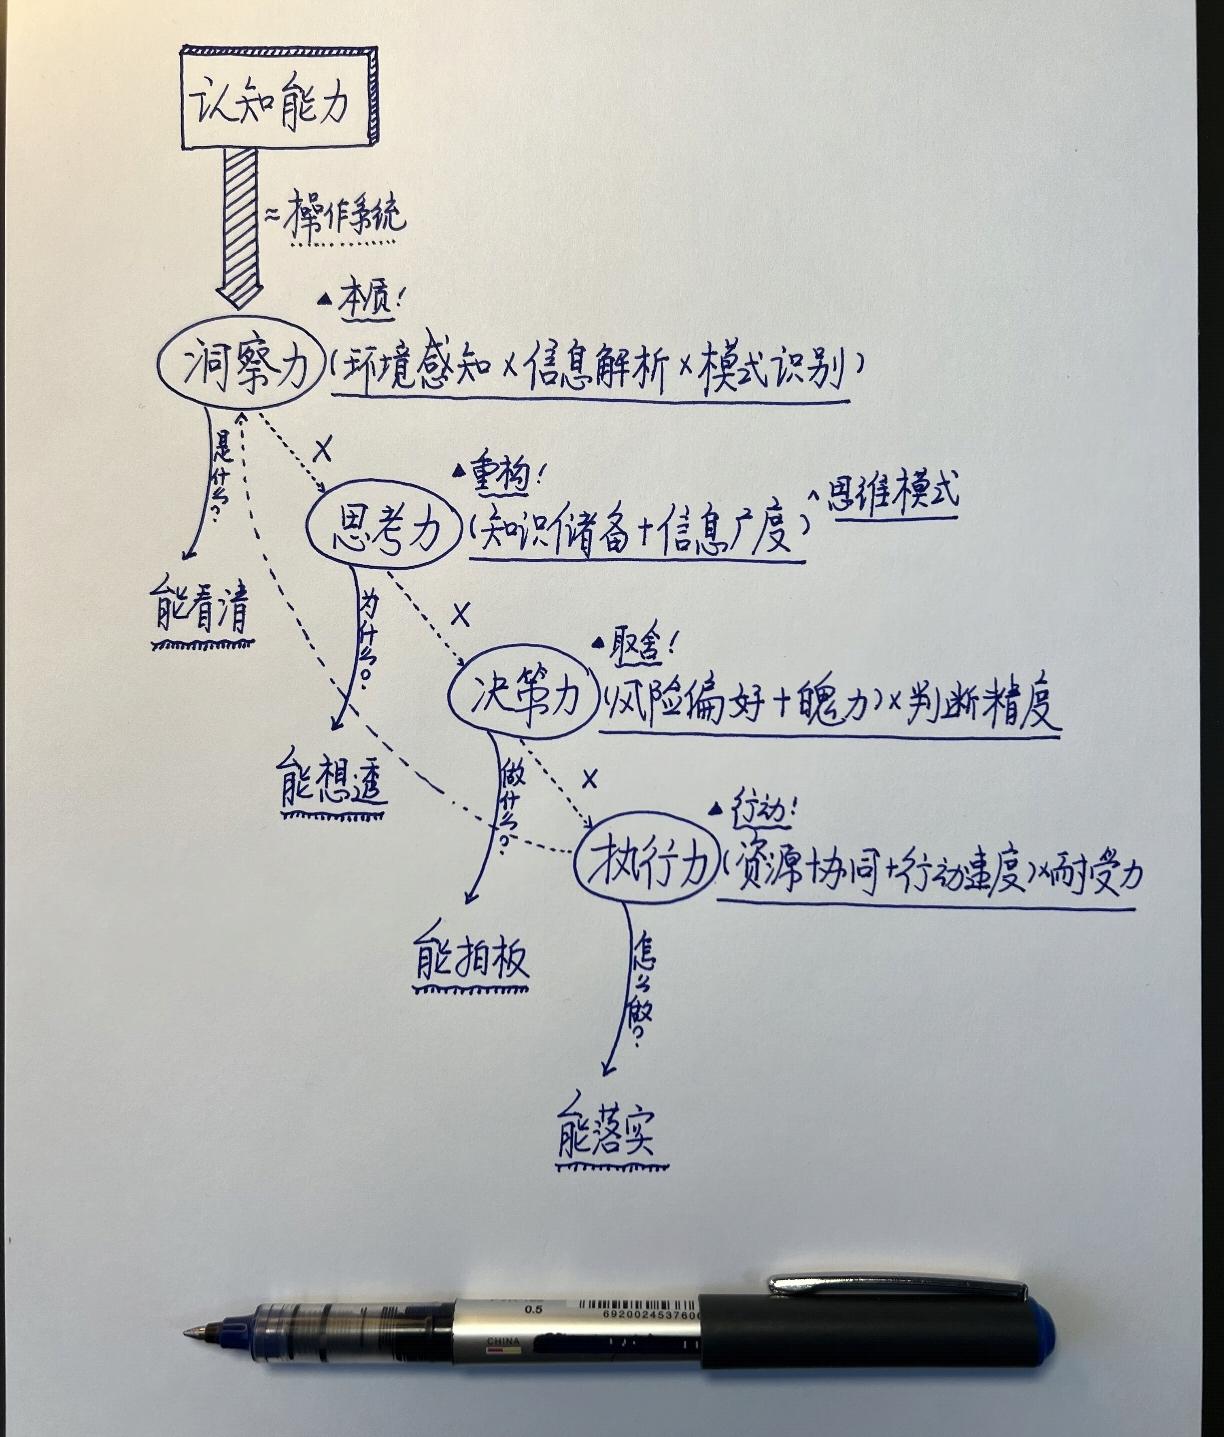 认知能力
≈操作系统
▲本质!
洞察力(环境感知×信息解析×模式识别)
是什么?
能看清
×
▲重构!
思考力(知识储备+信息广度)^思维模式
为什么?
能想透
×
▲取舍!
决策力(风险偏好+魄力)×判断精度
做什么?
能拍板
×
▲行动!
执行力(资源协同+行动速度)×耐受力
怎么做?
能落实
0.5
CHINA